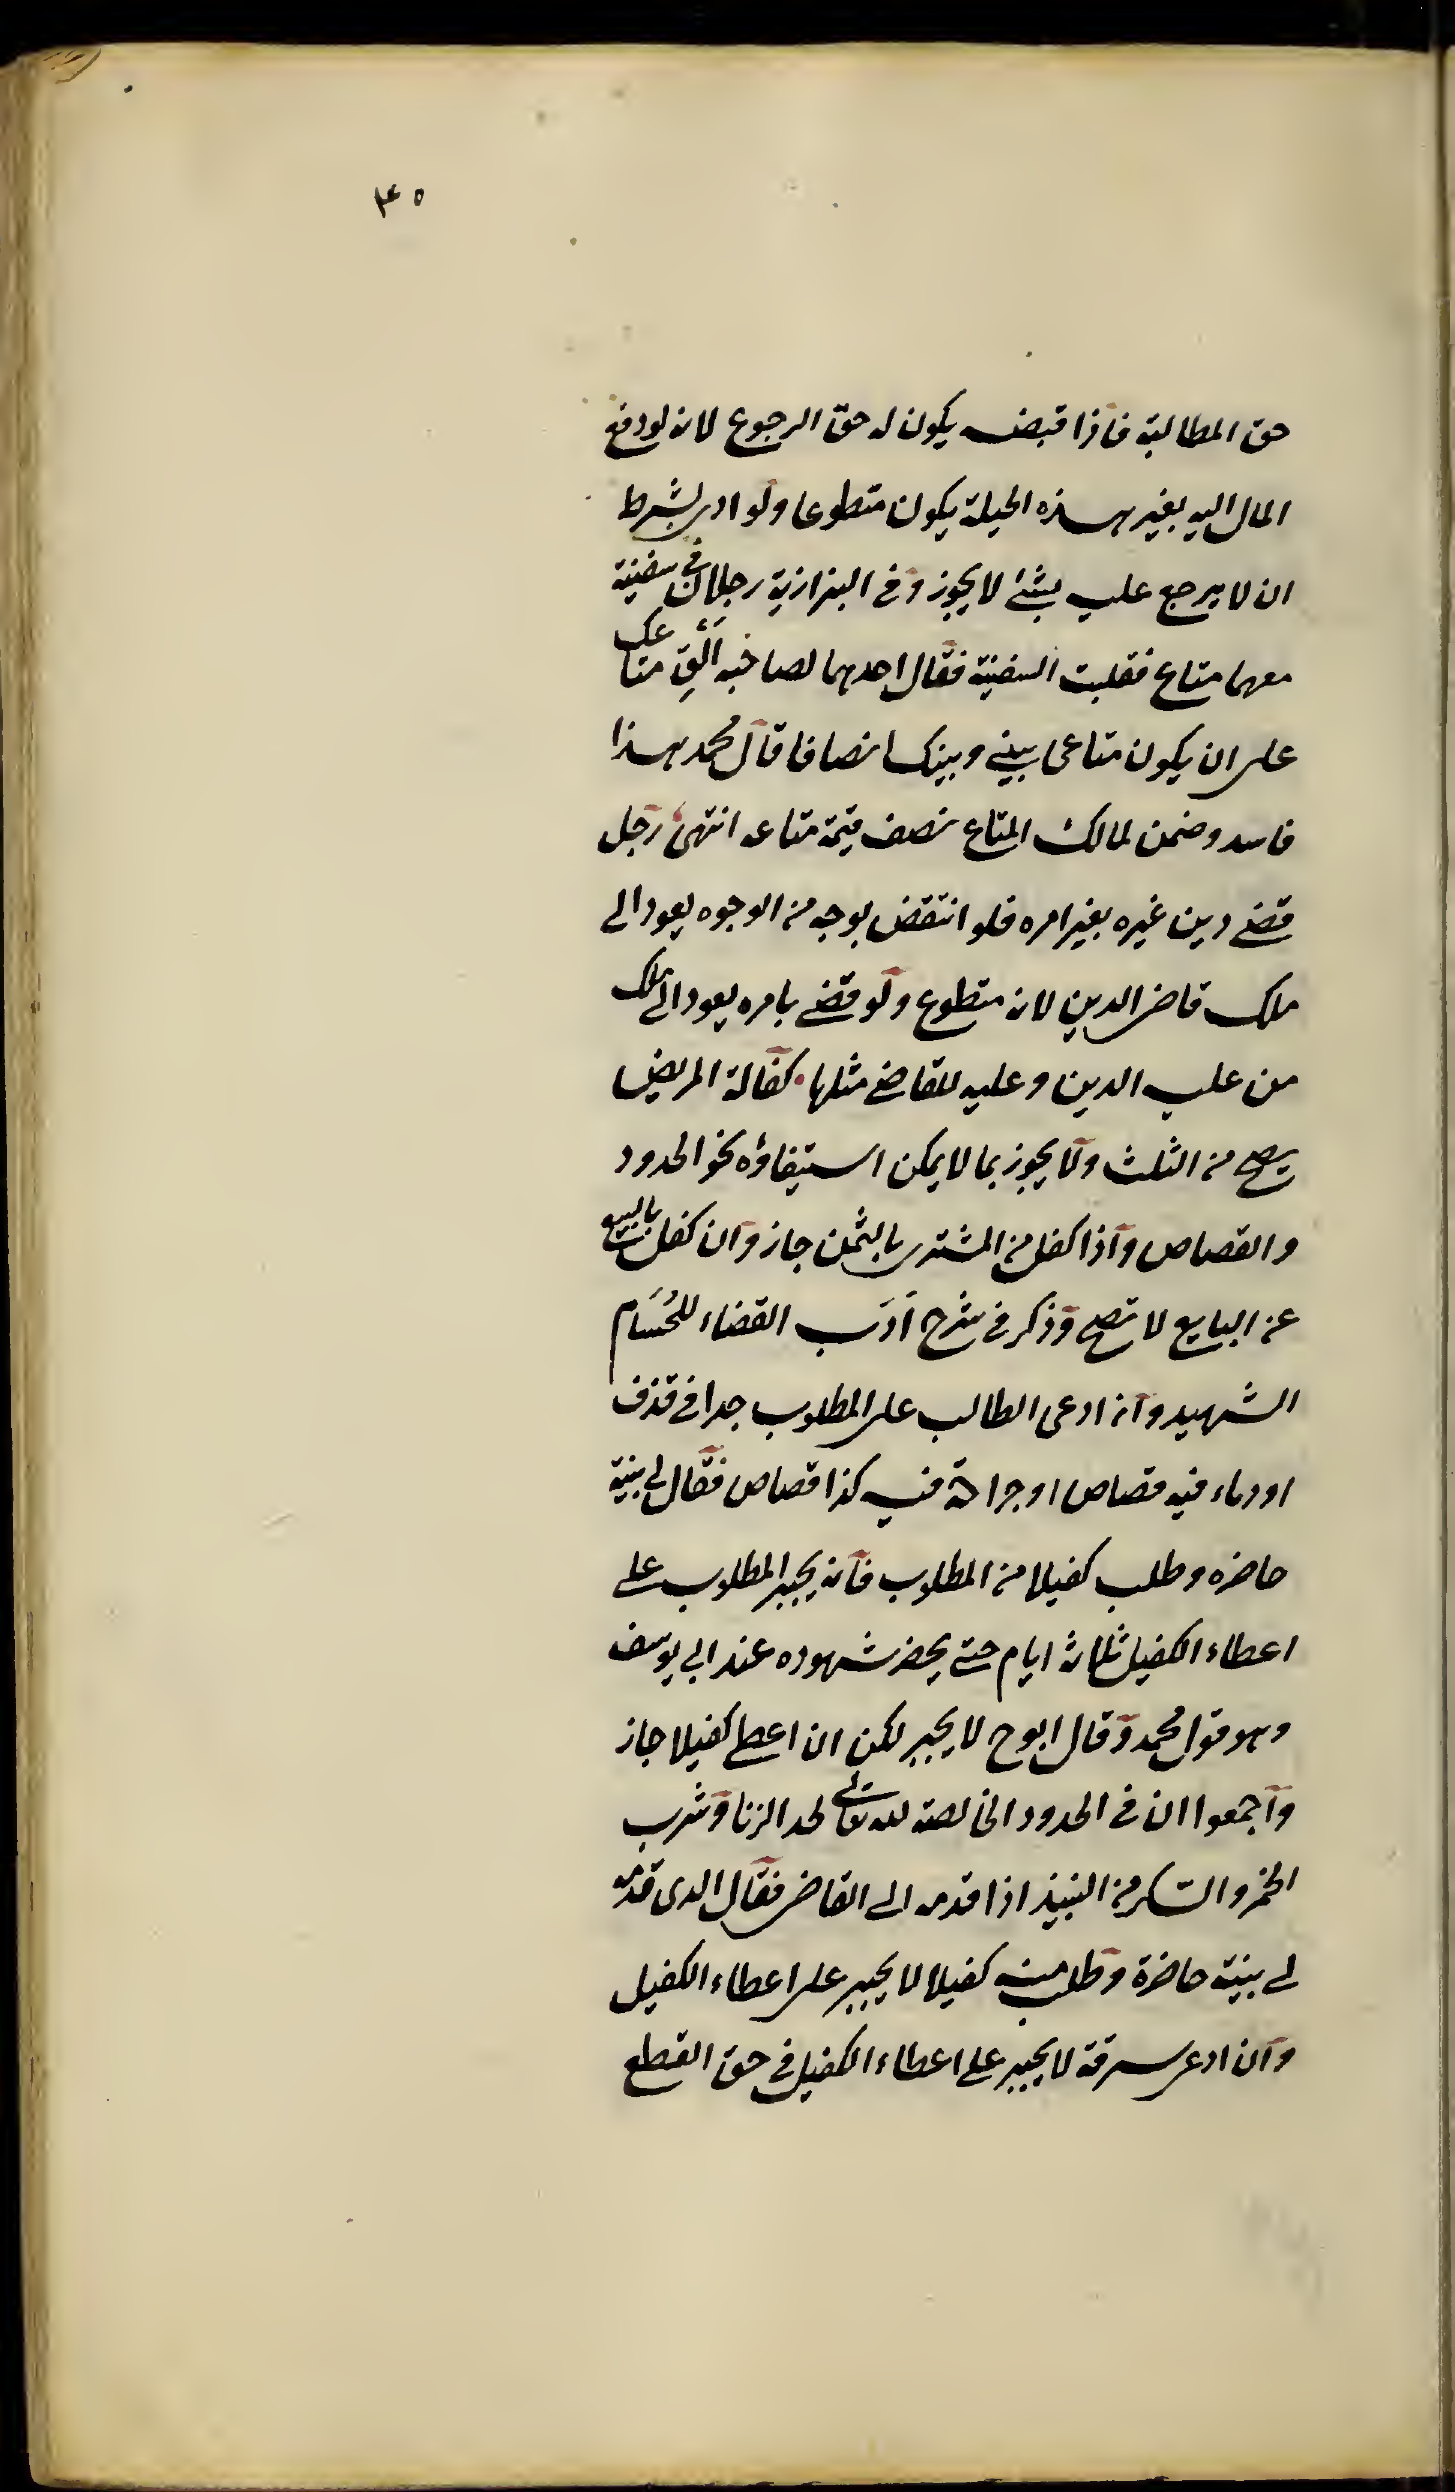 ٤٥
حق المطالبة فاذا قبضه يكون له حق الرجوع لانه لو دفع
المال اليه بغير هذه الحيلة يكون متطوعا ولو ادى بشرط
ان لا يرجع عليه بشئ لا يجوز وفي البزازية رجلان في سفينة
معهما متاع فثقلت السفينة فقال احدهما لصاحبه اَلْقِ متاعك
على ان يكون متاعى بيني وبينك انصافا قال محمد هذا
فاسد وضمن لمالك المتاع نصف قيمة متاعه انتهى رجل
قضى دين غيره بغير امره فلو انتقض بوجه من الوجوه يعود الى
ملك قاضى الدين لانه متطوع ولو قضى بامره يعود الى ملك
من عليه الدين وعليه للقاضى مثلها كفالة المريض
يصح من الثلث ولا يجوز بما لا يمكن استيفاؤه نحو الحدود
والقصاص واذا كفل من المشترى بالثمن جاز وان كفل بالمبيع
عن البايع لا تصح وذكر في شرح اَدَب القضاء للحُسَام
الشهيد وان ادعى الطالب على المطلوب حدا في قذف
او دماء فيه قصاص او جراحة فيه كذا قصاص فقال لى بينة
حاضره وطلب كفيلا من المطلوب فانه يجبر المطلوب على
اعطاء الكفيل ثلاثة ايام حتى يحضر شهوده عند ابي يوسف
وهو قول محمد وقال ابو ح لا يجبر لكن ان اعطى كفيلا جاز
واجمعوا ان في الحدود الخالصة لله تعالى كحد الزنا وشرب
الخمر والسكر من النبيذ اذا قدمه الى القاضى فقال الذى قدمه
لى بينة حاضرة وطلب منه كفيلا لا يجبر على اعطاء الكفيل
وان ادعى سرقة لا يجبر على اعطاء الكفيل في حق القطع